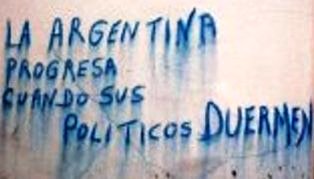 LA ARGENTINA
PROGRESA
CUANDO SUS
POLITICOS DUERMEN